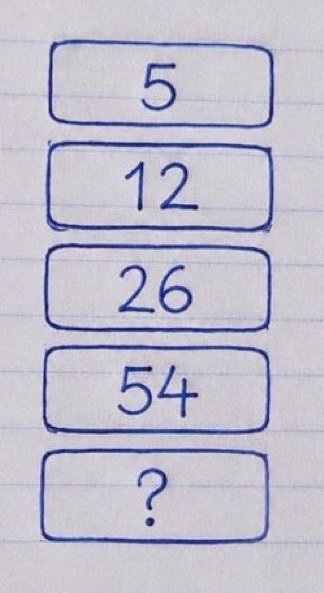 5
12
26
54
?